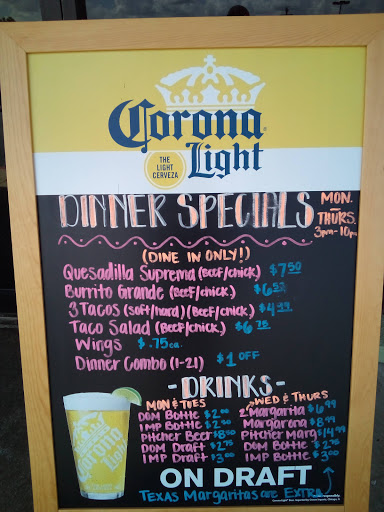 Corona
Light
THE
LIGHT
CERVEZA
DINNER SPECIALS MON.
THURS.
3pm-10pm
(DINE IN ONLY!)
Quesadilla Suprema (Beef/chick.) $7.50
Burrito Grande (Beef/chick.)
3 Tacos (soft/hard) (Beef/chick.) $4.99
Taco Salad (Beef/chick.) $6.75
Wings $.75 ea.
Dinner Combo (1-21) $1 OFF
-DRINKS-
MON & TUES
DOM Bottle $2.00
IMP Bottle $2.50
Pitcher Beer $8.00
DOM Draft $2.75
IMP Draft $3.00
WED & THURS
2 Margarita $6.99
Margarona $8.99
Pitcher Marg $14.99
DOM Bottle $2.75
IMP Bottle $3.00
Corona
Light
ON DRAFT
TEXAS Margaritas are EXTRA